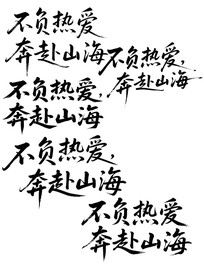 不负热爱
奔赴山海
不负热爱，
奔赴山海
不负热爱，
奔赴山海
不负热爱，
奔赴山海
不负热爱
奔赴山海